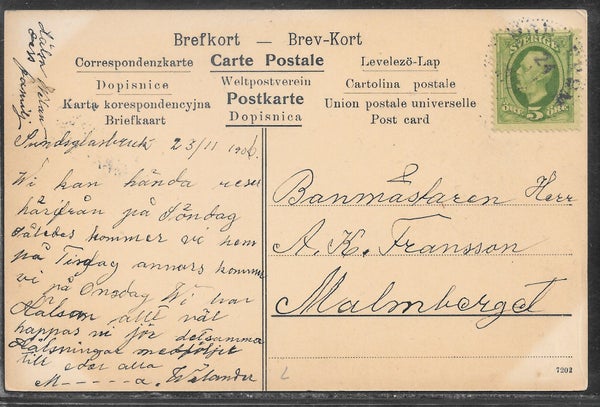 Brefkort — Brev-Kort
Correspondenzkarte Carte Postale Levelező-Lap
Dopisnice Weltpostverein Cartolina postale
Karta korespondencyjna Postkarte Union postale universelle
Briefkaart Dopisnica Post card
SVERIGE
ÖRE 5 ÖRE
Sundsglasbruk 23/11 1906.
Wi kan hända reser
härifrån på Söndag
Således kommer vi hem
på Tisdag annars komme
vi på Onsdag Wi har
Hälsan allt väl
happas ni jör detsamma
Hälsningar medföljer
till eder alla
M-----a. Welander
Banmästaren Herr
A. K. Fransson
Malmberget
7202